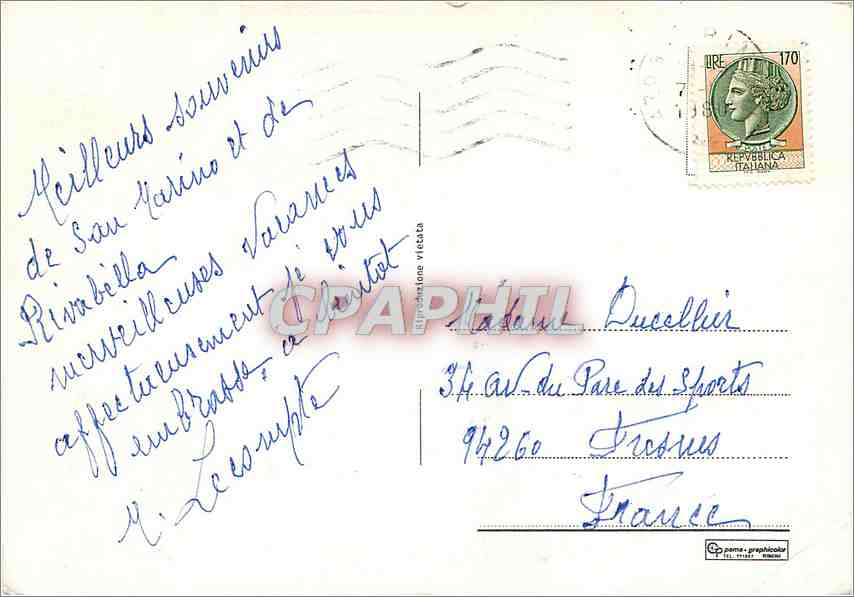 Meilleurs souvenirs
de San Marino et de
Rivabella
merveilleuses vacances
affectueusement je vous
embrasse, a bientot
M. Lecompte
Riproduzione vietata
CPAPHIL
LIRE 170
POSTE
REPVBBLICA
ITALIANA
1980
Madame Ducellier
34 av. du Parc des Sports
94260 Fresnes
France
pama - graphicolor